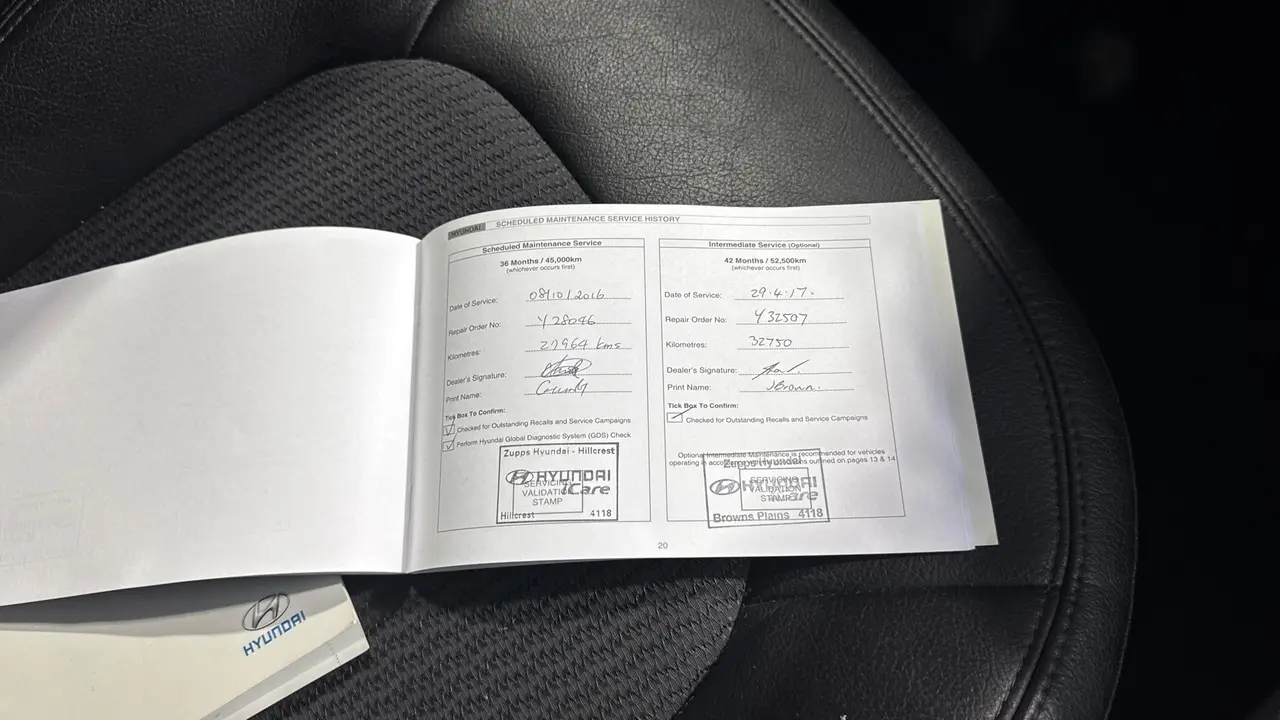 HYUNDAI SCHEDULED MAINTENANCE SERVICE HISTORY
Scheduled Maintenance Service
36 Months / 45,000km
(whichever occurs first)
Date of Service: 08/10/2016
Repair Order No: Y28046
Kilometres: 27964 kms
Dealer's Signature:
Print Name:
Tick Box To Confirm:
Checked for Outstanding Recalls and Service Campaigns
Perform Hyundai Global Diagnostic System (GDS) Check
Zupps Hyundai - Hillcrest
HYUNDAI
iCare
SERVICING
VALIDATION
STAMP
Hillcrest 4118
Intermediate Service (Optional)
42 Months / 52,500km
(whichever occurs first)
Date of Service: 29.4.17.
Repair Order No: Y32507
Kilometres: 32750
Dealer's Signature:
Print Name: J Brown.
Tick Box To Confirm:
Checked for Outstanding Recalls and Service Campaigns
Optional Intermediate Maintenance is recommended for vehicles
operating in outlined on pages 13 & 14
Zupps Hyundai
HYUNDAI
iCare
SERVICING
VALIDATION
STAMP
Browns Plains 4118
20
HYUNDAI